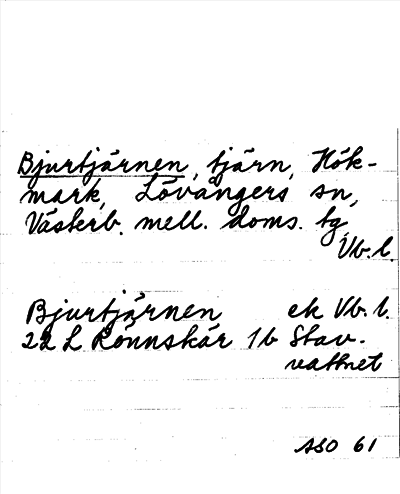 Bjurtjärnen, tjärn, Hök-
mark, Lövångers sn,
Västerb. mell. doms. tg,
Vb. l.
Bjurtjärnen ek Vb. l.
22 L Rönnskär 1b Stav-
vattnet
ASO 61